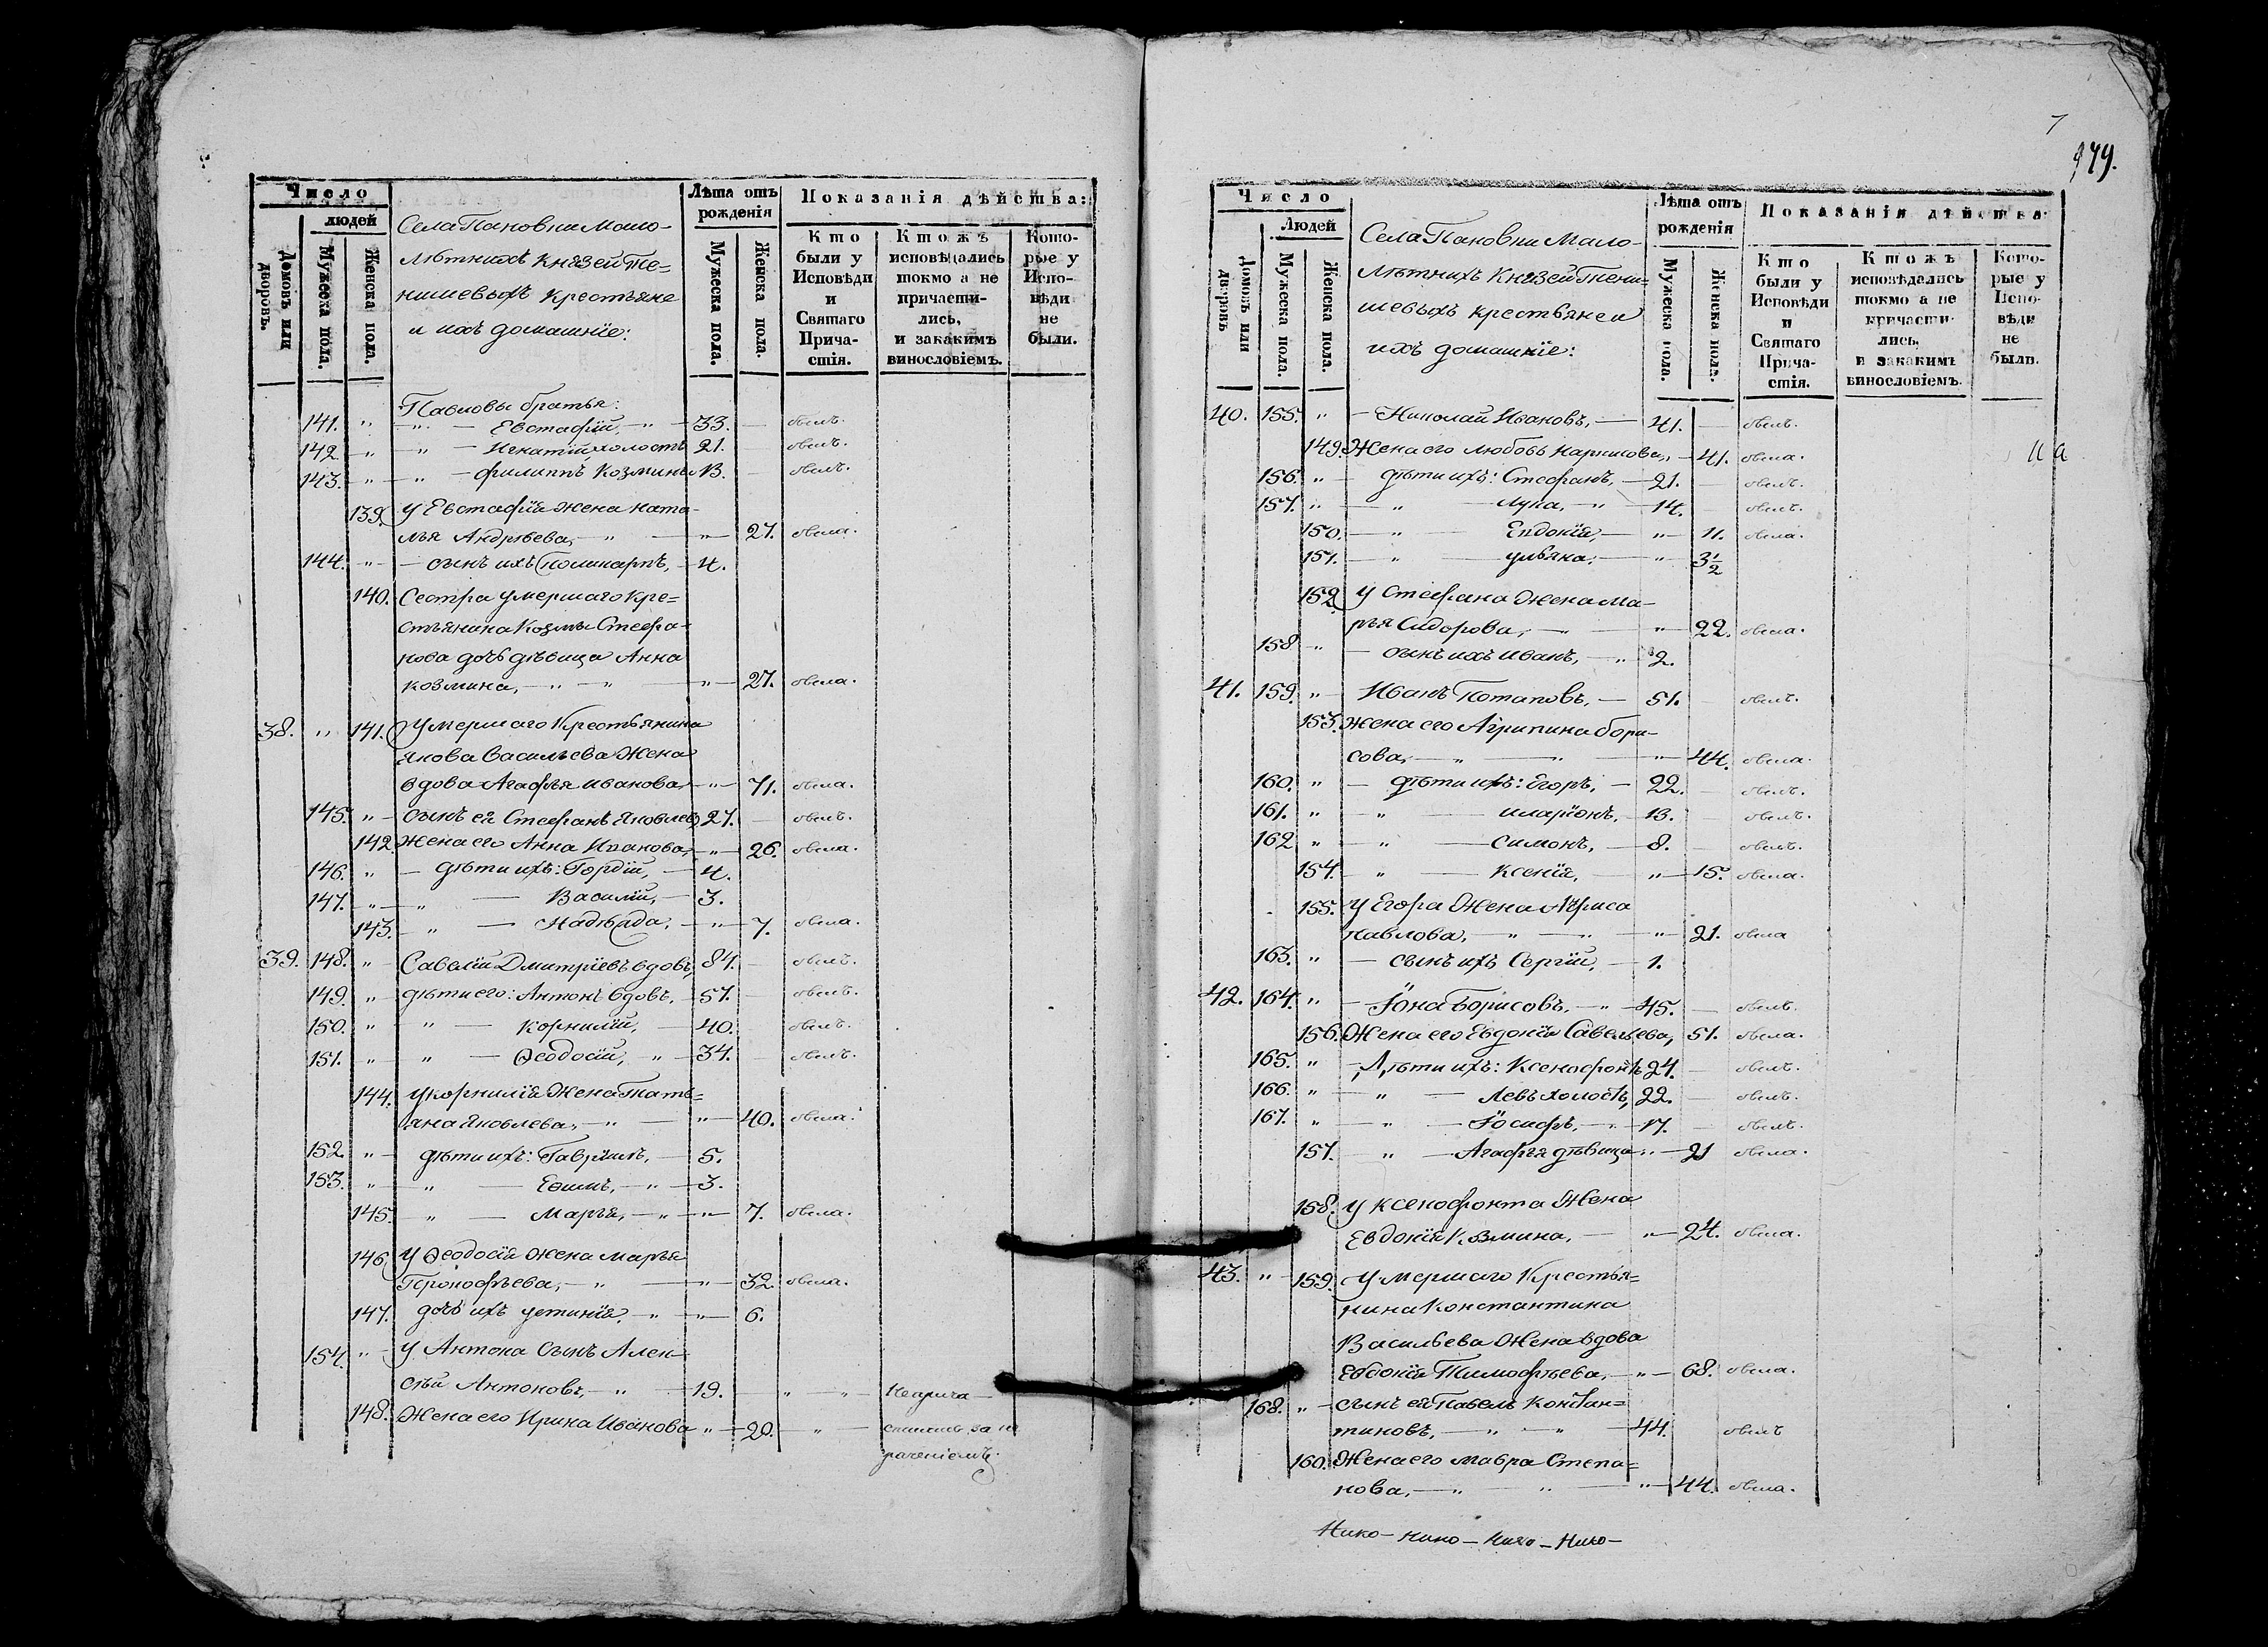 Число
людей
Домовъ или дворовъ.
Мужеска пола.
Женска пола.
Села Пановки Мало-
лѣтнихъ Князей Те=
нишевыхъ крестьяне
и ихъ домашніе:
Лѣта отъ рожденія
Мужеска пола.
Женска пола.
Показанія дѣйства:
Кто были у Исповѣди и Святаго Прича-стія.
Ктожъ исповѣдались токмо а не причасти-лись, и закакимъ винословіемъ.
Кото-рые у Испо-вѣди не были.
Павловы братья:
141. „ — „ — Евстафій, — „ — 33. — былъ.
142. „ — „ — Игнатій, холостъ 21. — былъ.
143. — „ — „ — Филиппъ Козминъ 13. — былъ.
139. У Евстафія жена Ната-
лья Андреева, — „ — „ — 27. была.
144. — „ — сынъ ихъ Поликарпъ, — 4.
140. Сестра умершаго Кре=
стьянина Козмы Стефа-
нова дочь дѣвица Анна
Козмина, — „ — „ — „ — 27. была.
38. „ 141. Умершаго Крестьянина
Якова Васильева Жена
вдова Агафья Иванова, — „ — 71. была.
145. „ — сынъ ея Стефанъ Яковлевъ, 27. — былъ.
142. Жена его Анна Иванова, — „ — 26. была.
146. „ — дѣти ихъ: Гордій, — 4.
147. — „ — „ — Василій, — 3.
143. — „ — Надѣжда, — „ — 7. была.
39. 148. „ — Савелій Дмитріевъ вдовъ, 84. — былъ.
149. „ — дѣти его: Антонъ вдовъ, — 57. — былъ.
150. „ — „ — Корнилій, — 40. былъ.
151. „ — „ — Ѳеодосій, — „ — 34. — былъ.
144. У Корнилія Жена Тать=
яна Яковлева, — „ — „ — 40. была.
152. „ — дѣти ихъ: Гавріилъ, — 5.
153. „ — „ — Еѳимъ, — „ — 3.
145. — „ — Марья, — „ — „ — 7. была.
146. У Ѳеодосія жена Марья
Прокофьева, — „ — „ — 32. была.
147. дочь ихъ Устинія, — „ — „ — 6.
154. „ — У Антона сынъ Алек-
сѣй Антоновъ, — „ — 19. — „ — „ — Неприча-
148. Жена его Ирина Иванова „ — 20. — „ —
7
979.
Число
Людей
Домовъ или дворовъ
Мужеска пола.
Женска пола.
Села Пановки Мало-
лѣтнихъ Князей Тени=
шевыхъ крестьяне и
ихъ домашніе:
Лѣта отъ рожденія
Мужеска пола.
Женска пола.
Показанія дѣйства:
Кто были у Исповѣди и Святаго Прича-стія.
Ктожъ исповѣдались токмо а не причасти-лись, и закакимъ винословіемъ.
Кото-рые у Испо-вѣди не были.
40. 155. „ — Николай Ивановъ, — 41. — былъ.
149. Жена его Любовь Карпилова, — 41. была.
156. „ — дѣти ихъ: Стефанъ, — 21. — былъ.
157. „ — „ — Лука, — „ — 14. — былъ.
150. — „ — Евдокія, — „ — 11. была.
151. — „ — Ульяна, — „ — 3½
152. У Стефана Жена Ма-
рья Сидорова, — „ — 22. была.
158 „ — сынъ ихъ Иванъ, — „ 2.
41. 159. „ — Иванъ Потаповъ, — 51. — былъ.
153. Жена его Агрипина Бори-
сова, — „ — „ — „ — 44. была.
160. „ — дѣти ихъ: Егоръ, — 22. — былъ.
161. „ — „ — Иларіонъ, — 13. былъ.
162 „ — „ — Симонъ, — 8. — былъ.
154. — „ — Ксенія, — „ — 15. была.
155. У Егора Жена
Павлова, — „ — „ — „ — 21. была
163. „ — сынъ ихъ Сергій, — 1.
42. 164. „ — Іона Борисовъ, — „ — 45. — былъ.
156. Жена его Евдокія Савельева, 51. была.
165. „ — Дѣти ихъ: Ксенофонтъ 24. — былъ.
166. „ — „ — Левъ холостъ, 22. — былъ.
167. „ — „ — Іосифъ, — „ — 17. — былъ.
157. — „ — Агафья дѣвица „ — 21 была.
158. У Ксенофонта Жена
Евдокія Козмина, — „ — 24. была.
43. „ — 159. Умершаго Крестья=
нина Константина
Васильева Жена вдова
Евдокія Тимофѣева, — „ — 68. была.
168. „ — сынъ ея Павелъ Констан=
тиновъ, — „ — „ — 44. былъ
160. Жена его Мавра Степа=
нова, — „ — „ — „ — 44. была.
Нико — нико — нико — Нико —